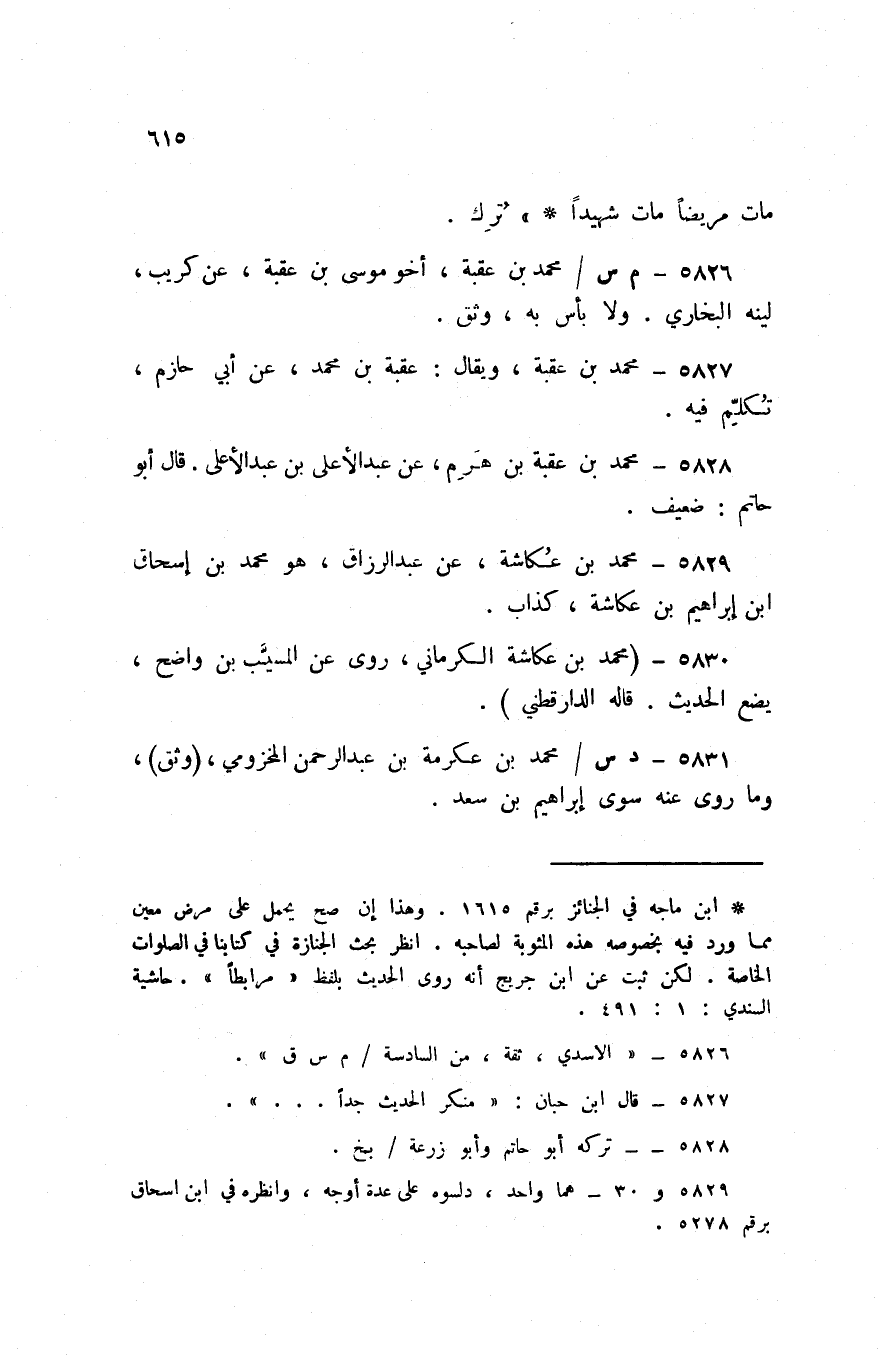 ٦١٥
مات مريضاً مات شهيداً * » تُرِك .
٥٨٢٦ – م س / محمد بن عقبة ، أخو موسى بن عقبة ، عن كريب ،
لينه البخاري . ولا بأس به ، وثق .
٥٨٢٧ – محمد بن عقبة ، ويقال : عقبة بن محمد ، عن أبي حازم ،
تُكلِّم فيه .
٥٨٢٨ – محمد بن عقبة بن هَرِم ، عن عبدالأعلى بن عبدالأعلى . قال أبو
حاتم : ضعيف .
٥٨٢٩ – محمد بن عُكاشة ، عن عبدالرزاق ، هو محمد بن إسحاق
ابن إبراهيم بن عكاشة ، كذاب .
٥٨٣٠ – (محمد بن عكاشة الكرماني ، روى عن المسيَّب بن واضح ،
يضع الحديث . قاله الدارقطني ) .
٥٨٣١ – د س / محمد بن عكرمة بن عبدالرحمن المخزومي ، (وثق) ،
وما روى عنه سوى إبراهيم بن سعد .
* ابن ماجه في الجنائز برقم ١٦١٥ . وهذا إن صح يحمل على مرض معين
مما ورد فيه بخصوصه هذه المثوبة لصاحبه . انظر بحث الجنازة في كتابنا في الصلوات
الخاصة . لكن ثبت عن ابن جريج أنه روى الحديث بلفظ « مرابطاً » . حاشية
السندي : ١ : ٤٩١ .
٥٨٢٦ – « الاسدي ، ثقة ، من السادسة / م س ق » .
٥٨٢٧ – قال ابن حبان : « منكر الحديث جداً . . . » .
٥٨٢٨ – – تركه أبو حاتم وأبو زرعة / بخ .
٥٨٢٩ و ٣٠ – هما واحد ، دلسوه على عدة أوجه ، وانظره في ابن اسحاق
برقم ٥٢٧٨ .